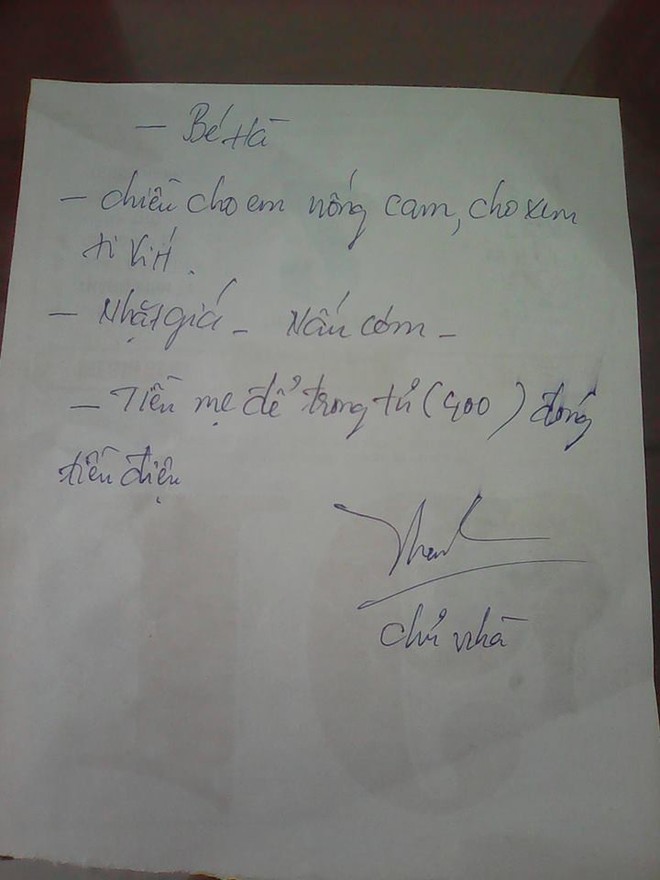 - Bé Hà
- chiều cho em uống cam, cho xem
ti vi.
- Nhặt giá - Nấu cơm -
- Tiền mẹ để trong tủ (400) đóng
tiền điện
Chủ nhà